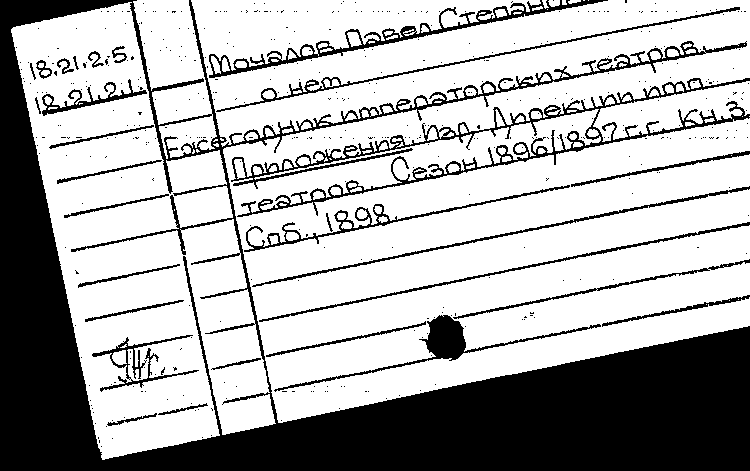 18.21.2.5.
18.21.2.1.
Мочалов, Павел Степано
о нем.
Ежегодник императорских театров.
Приложения. Изд. Дирекции имп.
театров. Сезон 1896/1897 г.г. Кн.3.
Спб., 1898.